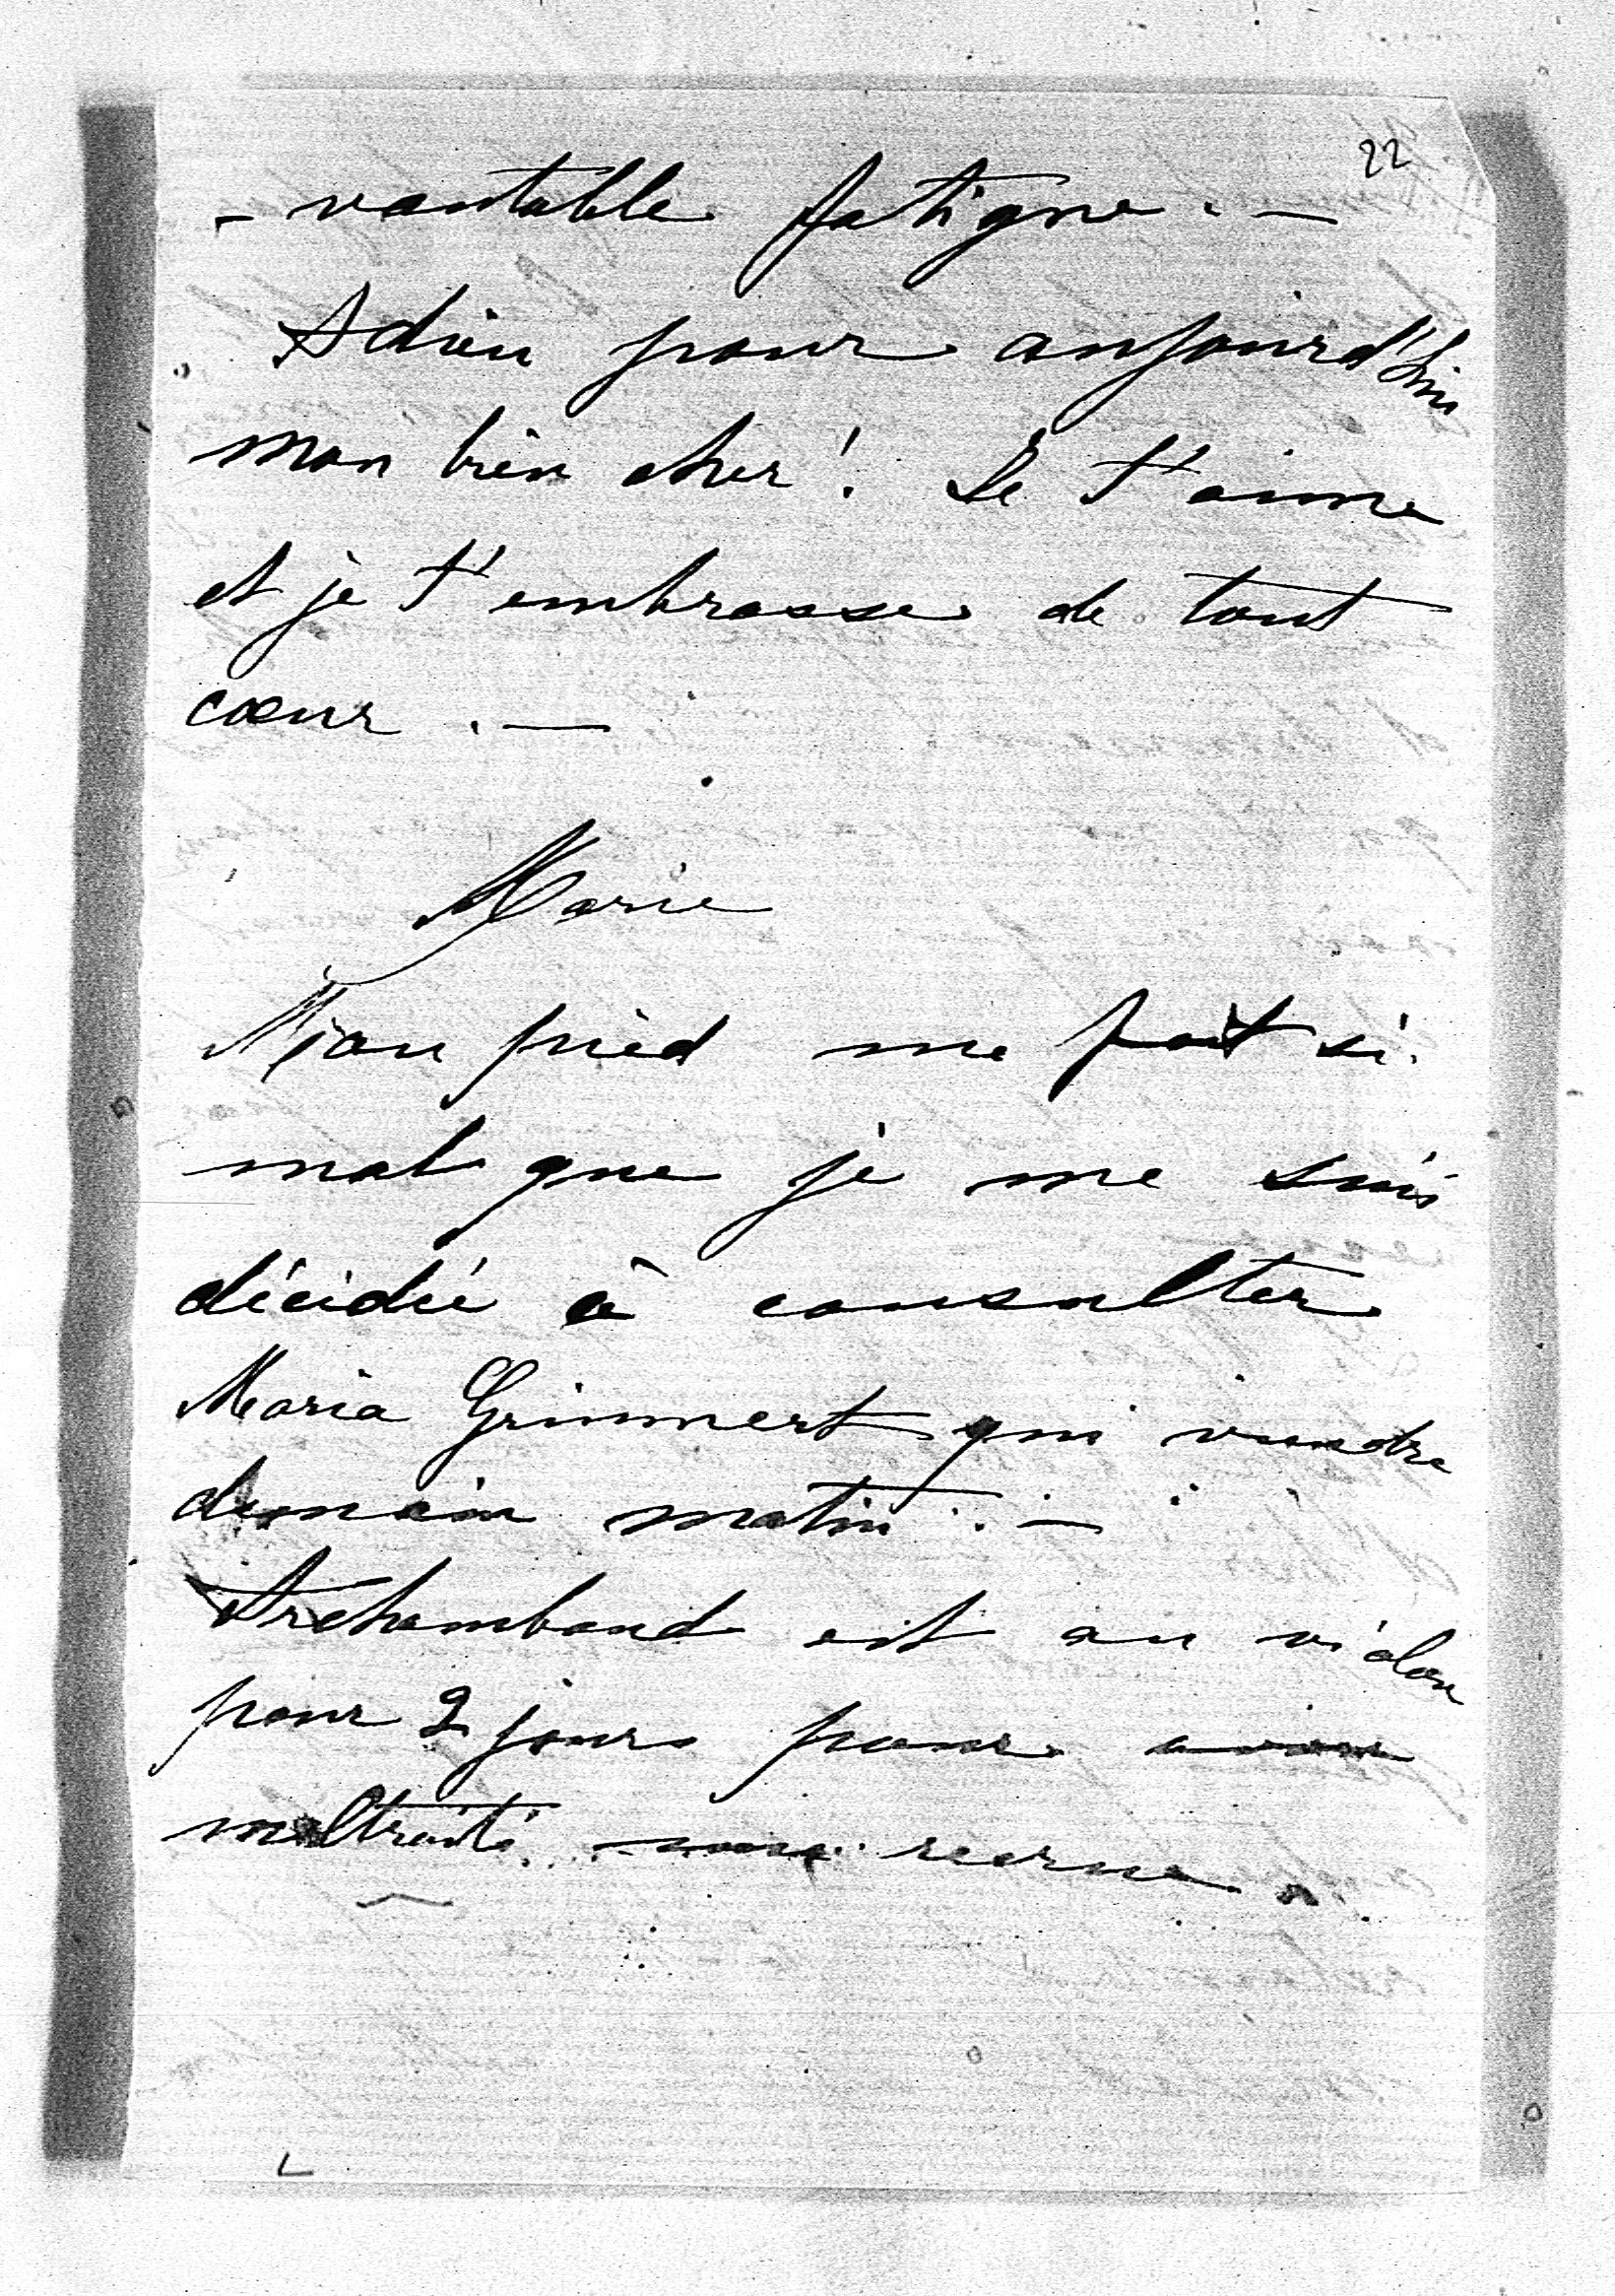 22
- vantable fatigue. —
Adieu pour aujourd'hui
mon bien cher! Je t'aime
et je t'embrasse de tout
cœur. —
Marie
Mon pied me fait si
mal que je me suis
décidée à consulter
Maria Grimmert qui viendra
demain matin. —
Archambaud est au violon
pour 2 jours pour avoir
maltraité une recrue.